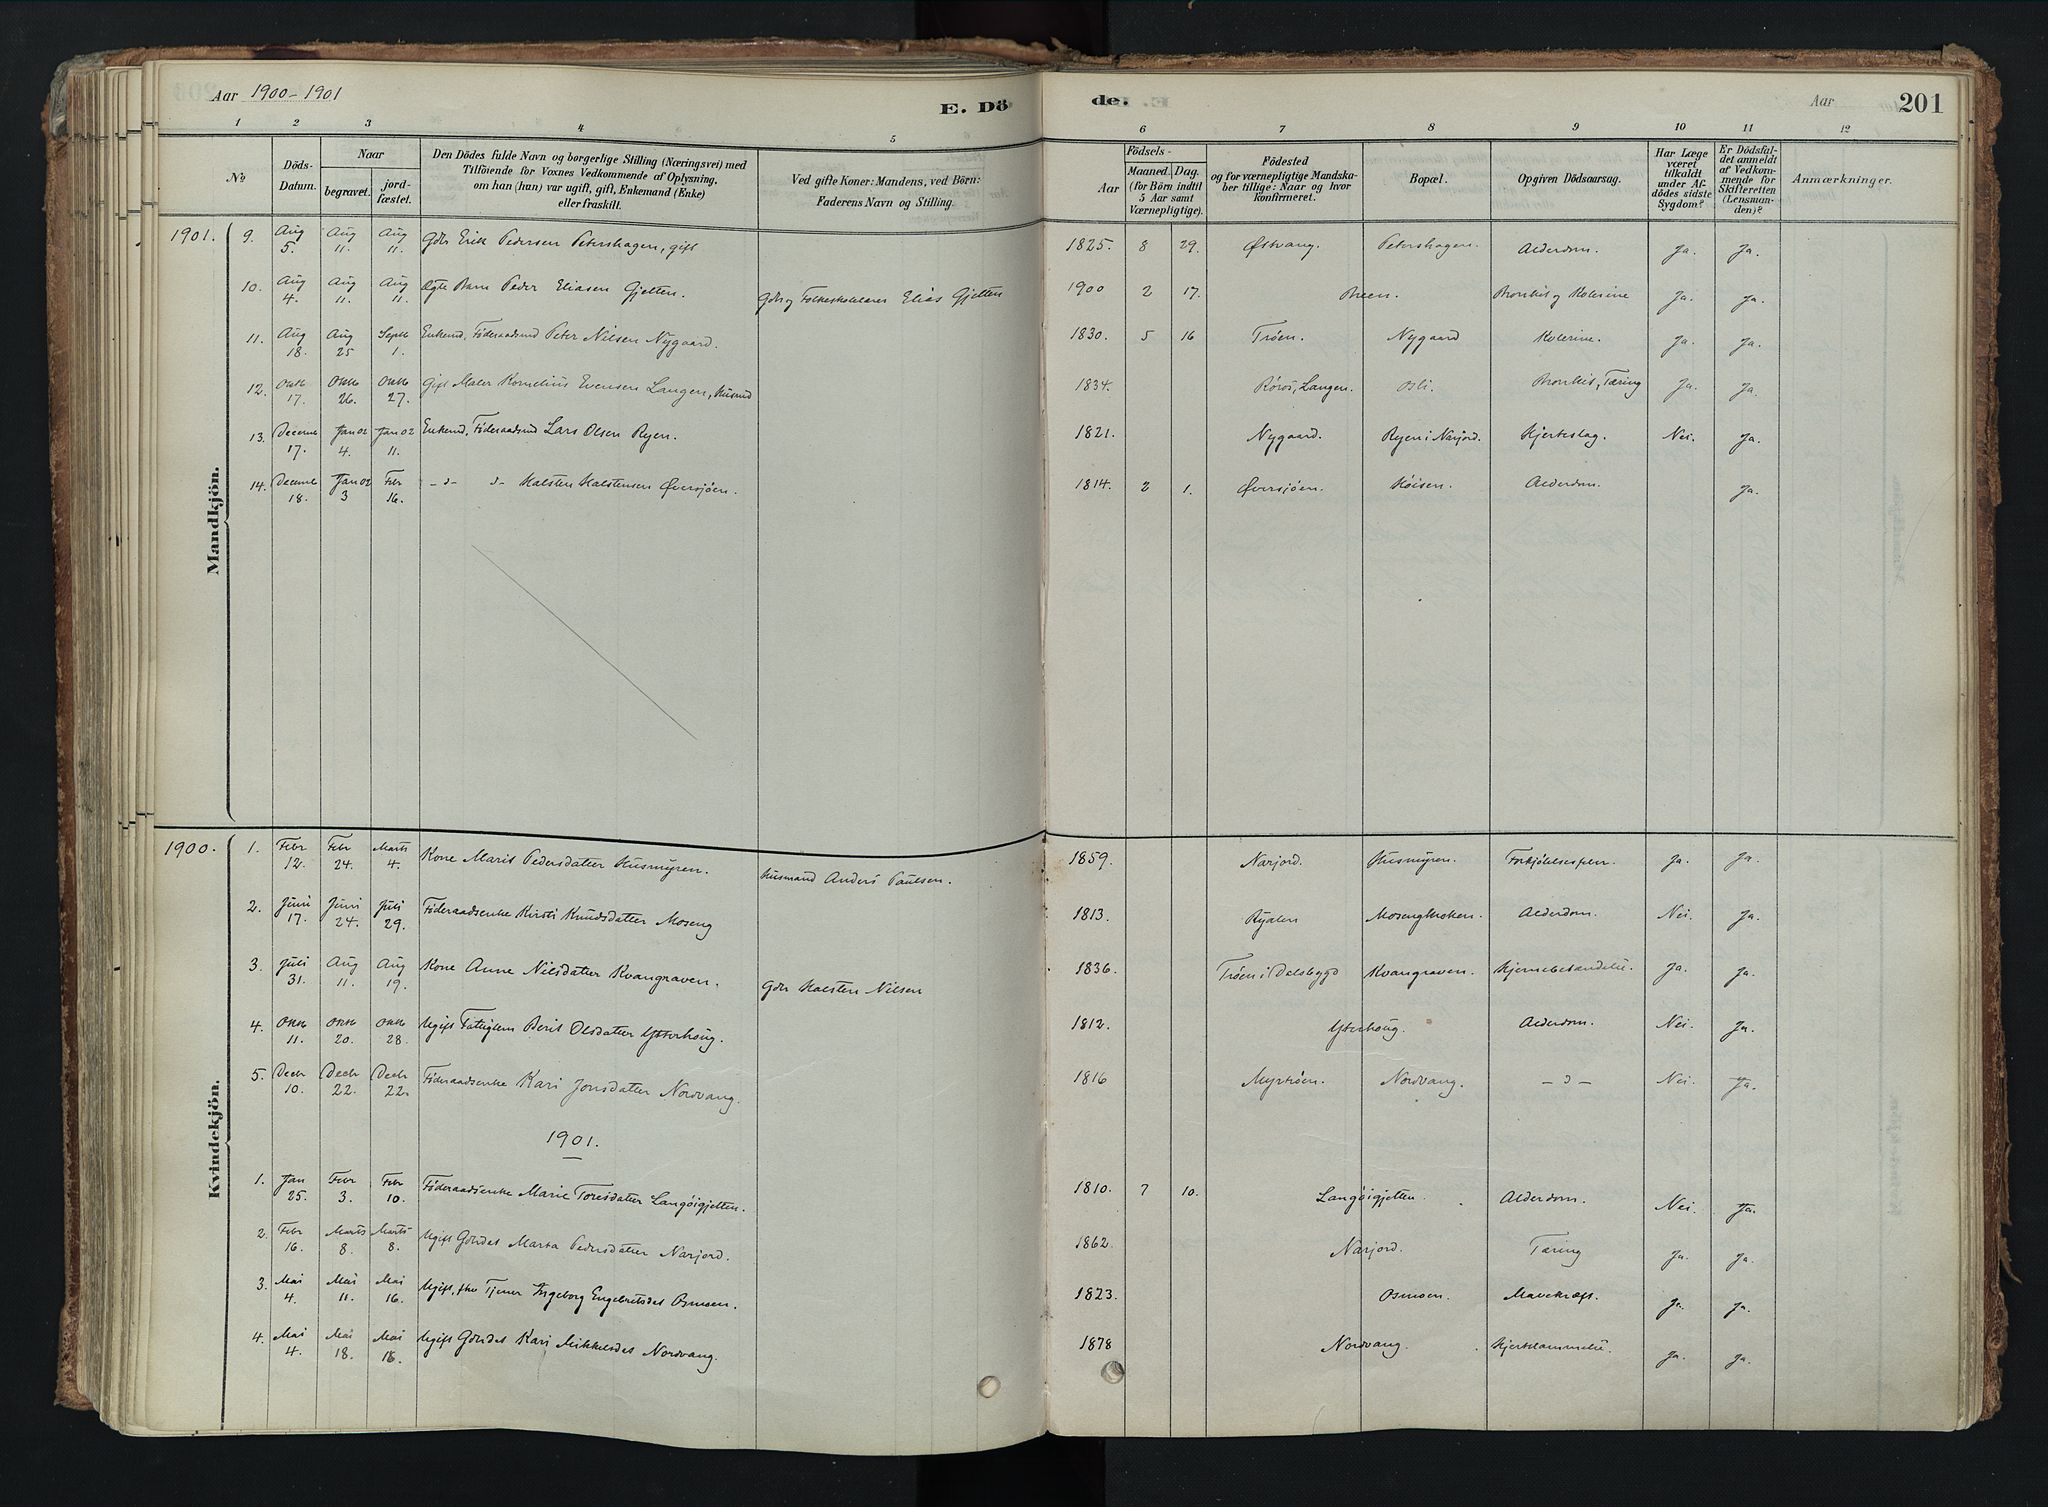 Aar 1900-1901
E. Dö de.
Aar 201
1 2 3 4 5 6 7 8 9 10 11 12
№
Döds-Datum.
Naar
begravet.
jord-fæstet.
Den Dödes fulde Navn og borgerlige Stilling (Næringsvei) med
Tilföiende for Voxnes Vedkommende af Oplysning,
om han (hun) var ugift, gift, Enkemand (Enke)
eller fraskilt.
Ved gifte Koner: Mandens, ved Börn:
Faderens Navn og Stilling.
Födsels-
Aar
Maaned. Dag.
(for Börn indtil
5 Aar samt
Værnepligtige).
Födested
og for værnepligtige Mandska-
ber tillige: Naar og hvor
konfirmeret.
Bopæl.
Opgiven Dödsaarsag.
Har Læge
været
tilkaldt
under Af-
dödes sidste
Sygdom?
Er Dödsfal-
det anmeldt
af Vedkom-
mende for
Skifteretten
(Lensman-
den)?
Anmærkninger.
Mandkjön.
1901. 9. Aug 5. Aug 11. Aug 11. Gbr Erik Pedersen Petershagen, gift 1825. 8 29. Østvang. Petershagen. Alderdom. Ja. Ja.
10. Aug 4. Aug 11. Aug 11. Ægte Barn Peder Eliasen Gjelten. Gbr og Folkeskolelærer Elias Gjelten 1900 2 17. Breen. Bronkit og Kolerine Ja. Ja.
11. Aug 18. Aug 25 Septb 1. Enkemd, Føderaadsmd Peter Nilsen Nygaard. 1830. 5 16 Trøen. Nygaard Kolerine. Ja. Ja.
12. Oktb 17. Oktb 26. Oktb 27. Gift Maler Kornelius Evensen Langen, Husmd 1834. Røros, Langen. Osli. Bronkit, Tæring Ja. Ja.
13. Decemb 17. Jan 02 4. Jan 02 11. Enkemd, Føderaadsmd Lars Olsen Ryen. 1821. Nygaard. Ryen i Narjord. Hjerteslag. Nei. Ja.
14. Decemb 18. Jan 02 3 Febr 16. Halsten Halstensen Øversjøen. 1814. 2 1. Øversjøen. Køisen. Alderdom. Ja.
Kvindekjön.
1900. 1. Febr 12. Febr 24. Marts 4. Kone Marit Pedersdatter Husmyren. Husmand Anders Paulsen. 1859. Narjord. Husmyren. Forkjølelsesfeber Ja. Ja.
2. Juni 17. Juni 24. Juli 29. Føderaadsenke Kirsti Knudsdatter Moseng 1813. Ryalen Mosengkroken. Alderdom. Nei. Ja.
3. Juli 31. Aug 11. Aug 19. Kone Anne Nilsdatter Kvangraven. Gbr Halsten Nilsen 1836. Trøen i Dalsbygd Kvangraven. Hjernebetændelse. Ja. Ja.
4. Oktb 11. Oktb 20. Oktb 28. Ugift Fattiglem Berit Olsdatter Ytterhoug. 1812. Ytterhoug. Alderdom. Nei. Ja.
5. Decb 10. Decb 22. Decb 22. Føderaadsenke Kari Jonsdatter Nordvang. 1816 Myrtrøen. Nordvang. Nei. Ja.
1901.
1. Jan 25. Febr 3. Febr 10. Føderaadsenke Marie Toresdatter Langøigjelten. 1810. 7 10. Langøigjelten. Alderdom. Nei. Ja.
2. Febr 16. Marts 8. Marts 8. Ugift Gbrdat Marta Pedersdatter Narjord. 1862. Narjord. Tæring Ja. Ja.
3. Mai 4. Mai 11. Mai 16. Ugift, fhv Tjener Ingeborg Engebretsdat Osmoen. 1823. Osmoen. Mavekræft. Ja. Ja.
4. Mai 4. Mai 18. Mai 16. Ugift Gbrdat Kari Mikkelsdat Nordvang. 1878 Nordvang. Hjertelammelse. Ja. Ja.